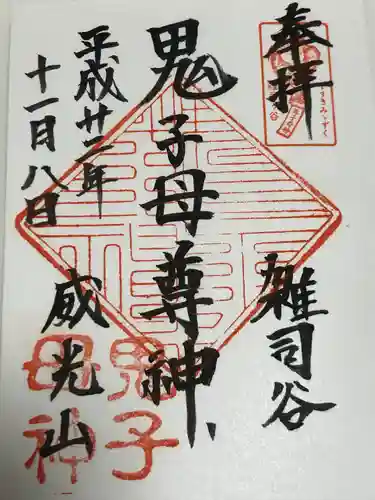 奉拝
雑司谷
鬼子母尊神
平成廿二年
十一月八日
威光山
鬼子
母神
すゝきみゝずく